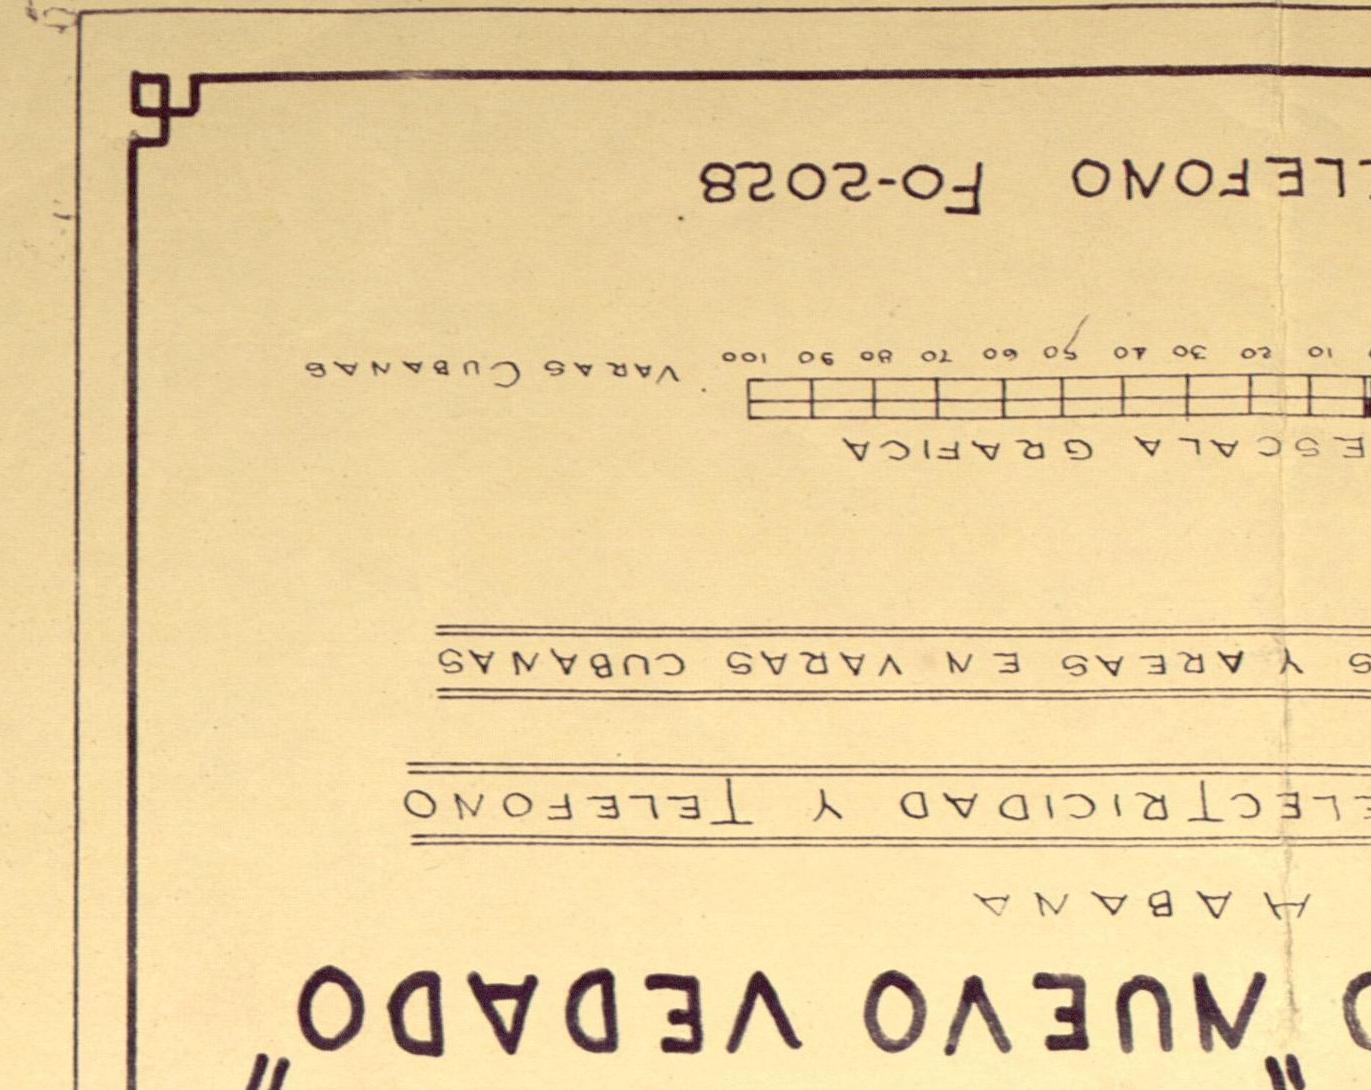 O "NUEVO VEDADO"
HABANA
ELECTRICIDAD Y TELEFONO
S Y AREAS EN VARAS CUBANAS
ESCALA GRAFICA
10 20 30 40 50 60 70 80 90 100 VARAS CUBANAS
LEFONO FO-2028